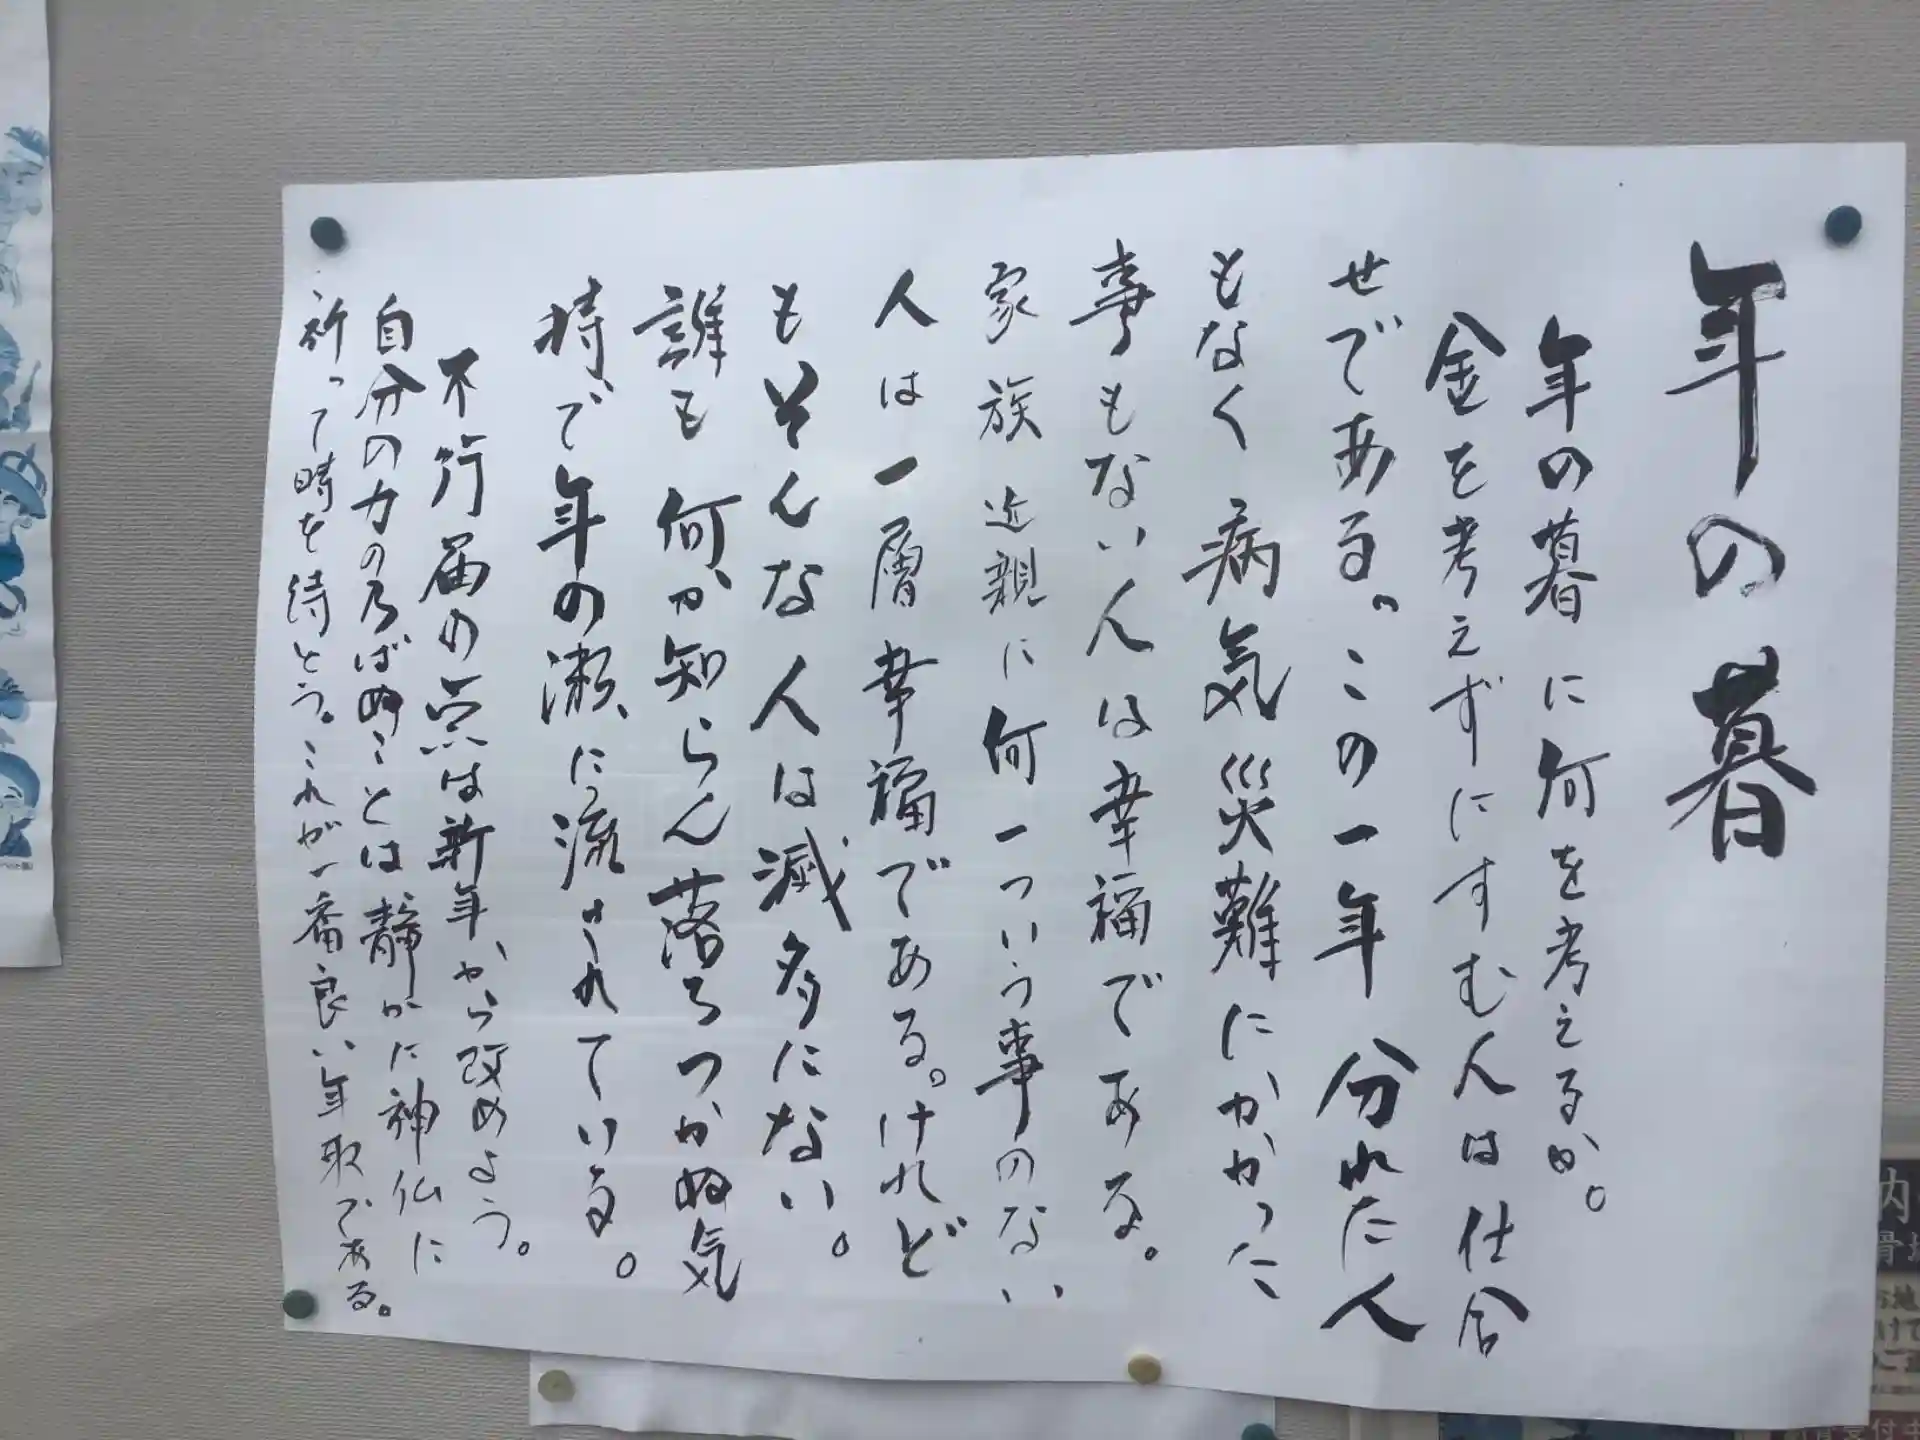 年の暮
年の暮に何を考えるか。
金を考えずにすむ人は仕合
せである。この一年分れた人
もなく病気災難にかかった
事もない人は幸福である。
家族近親に何一つという事のない
人は一層幸福である。けれど
もそんな人は滅多にない。
誰も何か知らん落ちつかぬ気
持で年の瀬に流されている。
不行届の点は新年から改めよう。
自分の力の及ばぬことは静かに神仏に
祈って時を待とう。これが一番良い年取である。
内
骨
お地
受付中